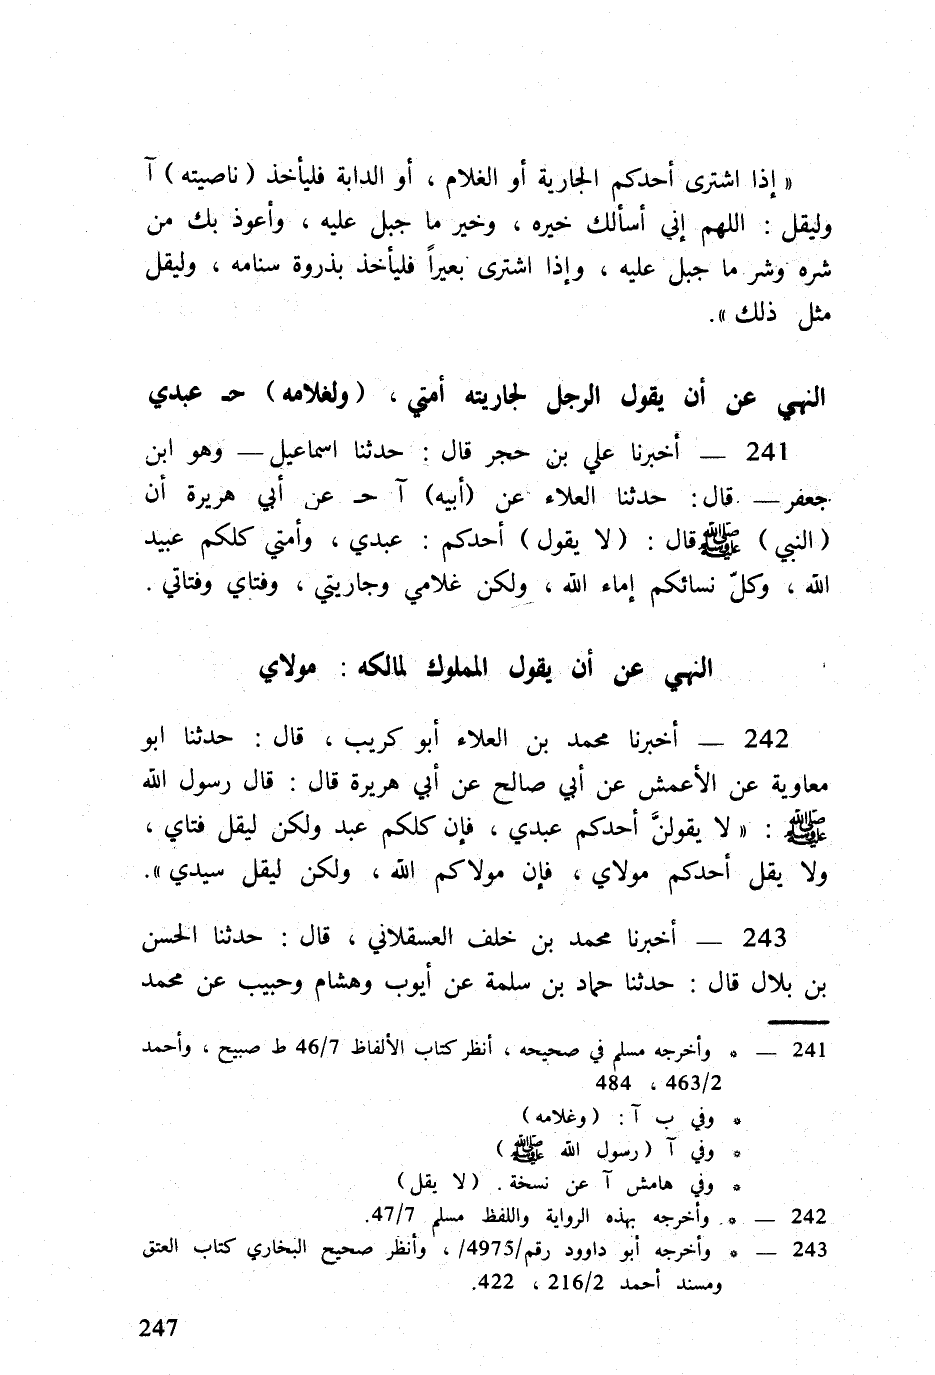 « إذا اشترى أحدكم الجارية أو الغلام ، أو الدابة فليأخذ ( ناصيته ) آ
وليقل : اللهم إني أسألك خيره ، وخير ما جبل عليه ، وأعوذ بك من
شره وشر ما جبل عليه ، وإذا اشترى بعيراً فليأخذ بذروة سنامه ، وليقل
مثل ذلك ».
النهي عن أن يقول الرجل لجاريته أمتي ، ( ولغلامه ) حـ عبدي
241 — أخبرنا علي بن حجر قال : حدثنا اسماعيل — وهو ابن
جعفر — قال : حدثنا العلاء عن (أبيه) آ حـ عن أبي هريرة أن
( النبي ) ﷺ قال : ( لا يقول ) أحدكم : عبدي ، وأمتي كلكم عبيد
الله ، وكلّ نسائكم إماء الله ، ولكن غلامي وجاريتي ، وفتاي وفتاتي .
النهي عن أن يقول المملوك لمالكه : مولاي
242 — أخبرنا محمد بن العلاء أبو كريب ، قال : حدثنا ابو
معاوية عن الأعمش عن أبي صالح عن أبي هريرة قال : قال رسول الله
ﷺ : « لا يقولنَّ أحدكم عبدي ، فإن كلكم عبد ولكن ليقل فتاي ،
ولا يقل أحدكم مولاي ، فإن مولاكم الله ، ولكن ليقل سيدي ».
243 — أخبرنا محمد بن خلف العسقلاني ، قال : حدثنا الحسن
بن بلال قال : حدثنا حماد بن سلمة عن أيوب وهشام وحبيب عن محمد
241 — * وأخرجه مسلم في صحيحه ، أنظر كتاب الألفاظ 46/7 ط صبيح ، وأحمد
463/2 ، 484
* وفي ب آ : ( وغلامه )
* وفي آ ( رسول الله ﷺ )
* وفي هامش آ عن نسخة . ( لا يقل )
242 — * وأخرجه بهذه الرواية واللفظ مسلم 47/7.
243 — * وأخرجه أبو داوود رقم/4975/ ، وأنظر صحيح البخاري كتاب العتق
ومسند أحمد 216/2 ، 422.
247